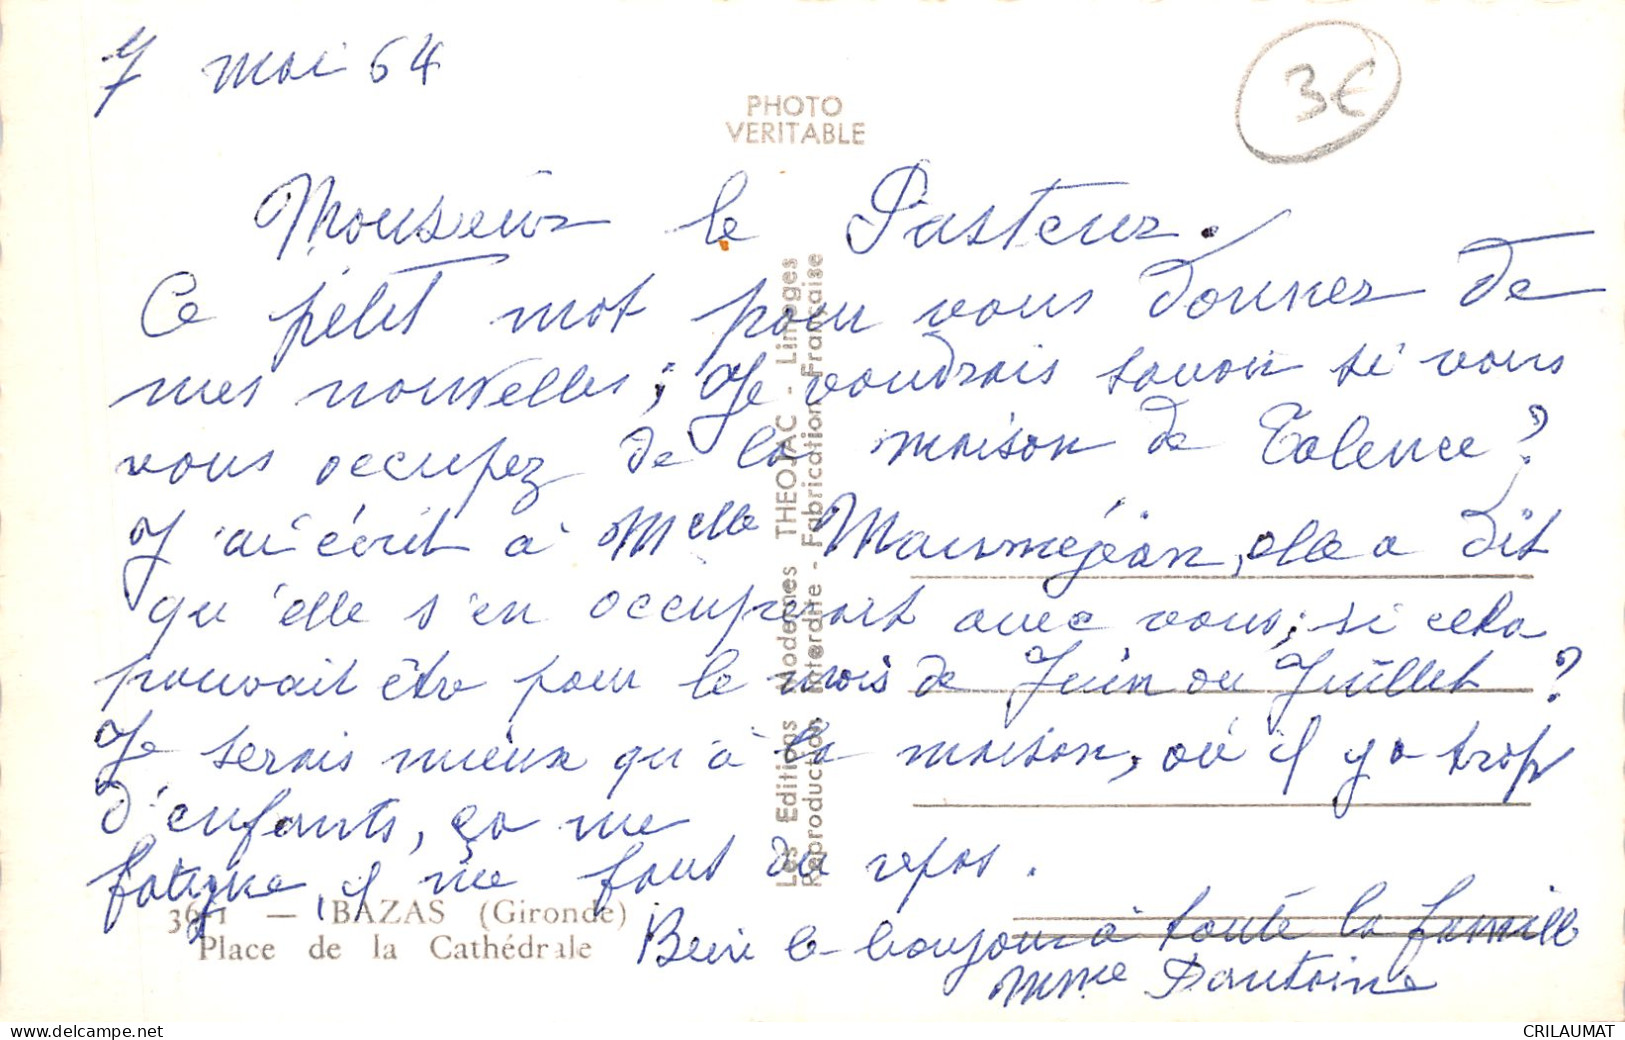 7 mai 64
3€
PHOTO
VERITABLE
Monsieur le Pasteur.
Ce petit mot pour vous donner de
mes nouvelles; Je voudrais savoir si vous
vous occupez de la maison de Talence?
J'ai écrit à Melle Maumejean, elle a dit
qu'elle s'en occuperait avec vous; si cela
pouvait être pour le mois de Juin ou Juillet?
Je serais mieux qu'à la maison, où il y a trop
d'enfants, ça me
fatigue, il me faut du repos.
Bien le bonjour à toute la famille
Mme
Les Editions Modernes THEOJAC - Limoges
Reproduction Interdite - Fabrication Française
BAZAS (Gironde)
Place de la Cathédrale
www.delcampe.net
CRILAUMAT